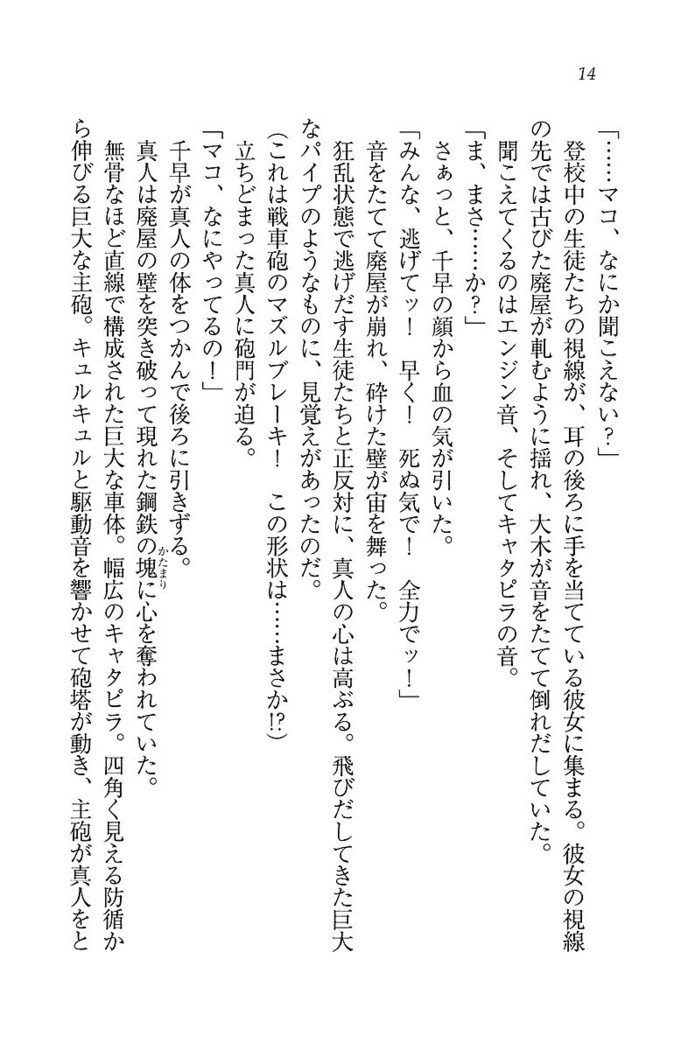 14
「……マコ、なにか聞こえない？」
　登校中の生徒たちの視線が、耳の後ろに手を当てている彼女に集まる。彼女の視線
の先では古びた廃屋が軋むように揺れ、大木が音をたてて倒れだしていた。
　聞こえてくるのはエンジン音、そしてキャタピラの音。
「ま、まさ……か？」
　さぁっと、千早の顔から血の気が引いた。
「みんな、逃げてッ！　早く！　死ぬ気で！　全力でッ！」
　音をたてて廃屋が崩れ、砕けた壁が宙を舞った。
　狂乱状態で逃げだす生徒たちと正反対に、真人の心は高ぶる。飛びだしてきた巨大
なパイプのようなものに、見覚えがあったのだ。
（これは戦車砲のマズルブレーキ！　この形状は……まさか!?）
　立ちどまった真人に砲門が迫る。
「マコ、なにやってるの！」
　千早が真人の体をつかんで後ろに引きずる。
　真人は廃屋の壁を突き破って現れた鋼鉄の塊かたまりに心を奪われていた。
　無骨なほど直線で構成された巨大な車体。幅広のキャタピラ。四角く見える防循か
ら伸びる巨大な主砲。キュルキュルと駆動音を響かせて砲塔が動き、主砲が真人をと